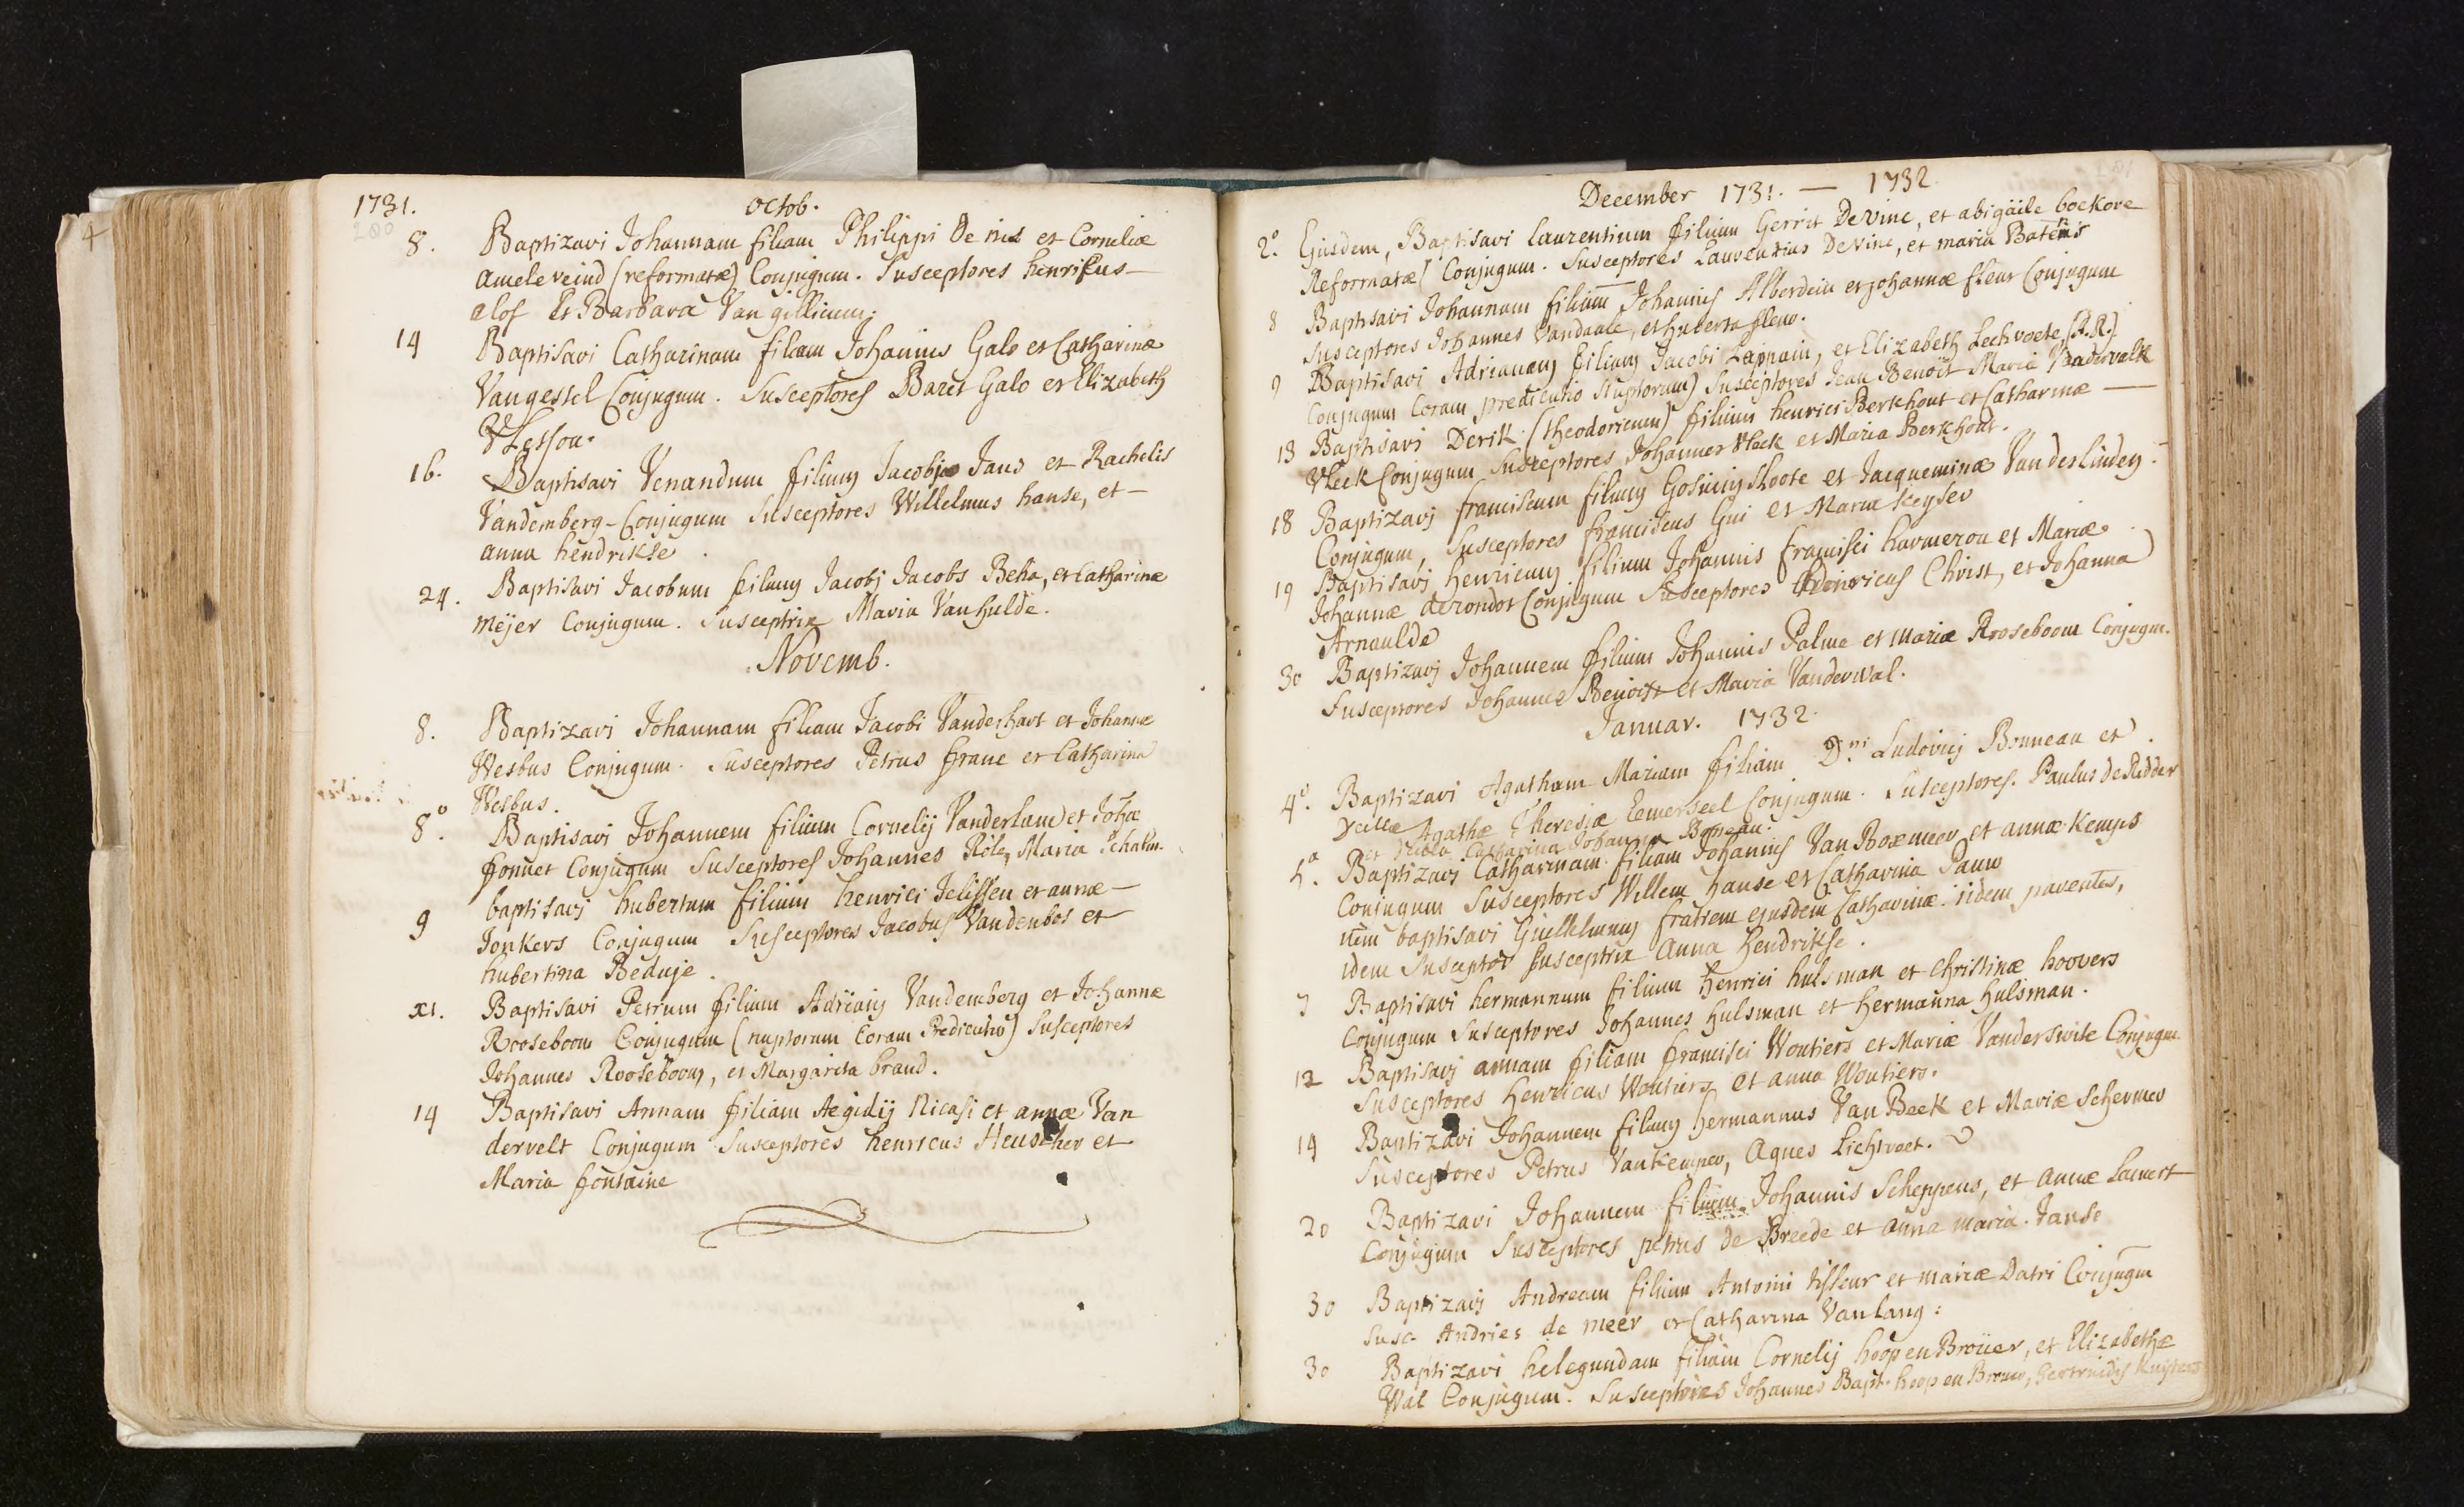 1731. octob.
200
8. Baptizavi Johannam filiam Philippi De nis et Corneliæ
ameleveind (reformatæ) Conjugum. Susceptores henricus —
elof Et Barbara Van gillicum.
14 Baptisavi Catharinam filiam Johannis Galo et Catharinæ
Vangestel Conjugum. Susceptores Baret Galo et Elizabeth
16. Baptisavi Venandum filium Jacobi Jans et Rachelis
Vandemberg - Conjugum Susceptores Willelmus hanse, et —
anna hendrikse.
24. Baptisavi Jacobum filium Jacobj Jacobs Beka, et Catharinæ
meijer Conjugum. Susceptrix Maria Van hulde.
Novemb.
8. Baptizavi Johannam filiam Jacobi Vanderhart et Johannæ
Wesbus Conjugum. Susceptores Petrus franc et Catharina
Wesbus.
8º. Baptisavi Johannem filium Cornelij Vanderlam et Joħæ
fonnet Conjugum Susceptores Johannes Role, Maria
9 baptisavj hubertum filium henrici Jelissen et annæ —
Jonkers Conjugum Susceptores Jacobus Vandenbos et
hubertina Beduje.
xi. Baptisavi Petrum filium Adriani Vandemberg et Johannæ
Rooseboom Conjugum (nuptorum Coram Predicatio) Susceptores
Johannes Rooseboom, et Margarita brand.
14 Baptisavi Annam filiam Aegidij Nicasi et annæ Van
dervelt Conjugum Susceptores henricus Heuscher et
Maria fontaine
December 1731. — 1732.
2º. Ejusdem, Baptisavi laurentium filium Gerrit De Vinc, et abigäile boekove
Reformatæ (Conjugum. Susceptores Laurentius De Vinc, et maria Batens
8 Baptisavi Johannam filiam Johannis Alberdein et johannæ fleur Conjugum
Susceptores Johannes Vandaale, et huberta fleur.
9 Baptisavi Adrianam filiam Jacobi Lapnain, et Elizabeth Lechvoete, (A.R.)
Conjugum Coram predicatio Nuptorum) Susceptores Jean Benoit Marie Vandervalk
13 Baptisavi Derik (theodoricum) filium henrici Berkhout et Catharinæ —
Vleck Conjugum Susceptores Johannes Vleck et Maria Berkhout.
18 Baptizavj franciscum filium Gosuini sloote et Jacqueminæ Vanderlinden.
Conjugum, Susceptores franciscus Gui et Maria Keyser
19 Baptisavj henricum filium Johannis francisci harmerou et Mariæ
Johannæ derondot Conjugum Susceptores henricus Christ, et Johanna
Arnaulde
30 Baptizavj Johannem filium Johannis Palme et mariæ Rooseboom Conjugm.
Susceptores Johannes Benoist et Maria Vanderwal.
Januar. 1732.
4º. Baptizavi Agatham Mariam filiam Dni Ludovicj Bonneau et
Agathæ Theresiæ Temerseel Conjugum. Susceptores. Paulus de Ridder
et Catharina Johanna Bonneau.
5ª. Baptizavj Catharinam filiam Johannis Van Boxmeer et annæ Kemps
Conjugum Susceptores Willem hanse et Catharina Pauw
item baptisavi Guillelmum fratrem ejusdem Catharinæ. iidem parentes,
idem Susceptor Susceptrix Anna hendrikse.
7 Baptisavi hermannum filium henrici hulsman et christinæ hoovers
Conjugum Susceptores Johannes hulsman et Hermanna hulsman.
12 Baptisavj annam filiam francisci Woutiers et Mariæ Vanderswite Conjugm
Susceptores henricus Woutiers et anna Woutiers.
14 Baptizavi Johannem filium hermannus Van Beek et Mariæ Schermer
Susceptores Petrus Vankemper, Agnes Lichtvoet.
20 Baptizavi Johannem filium Johannis Scheppens, et annæ Lamert
Conjugum Susceptores petrus de Breede et anna maria Janse
30 Baptizavj Andream filium Antonii tisseur et mariæ Datri Conjugm
Susc. Andries de meer et Catharina Vanlang:
30 Baptizavi helegundam filiam Cornelij hoop en Broüer, et Elizabethæ
Wal Conjugum. Susceptores Johannes Bapt. hoop en Brouer, Gertruidis Kuyters